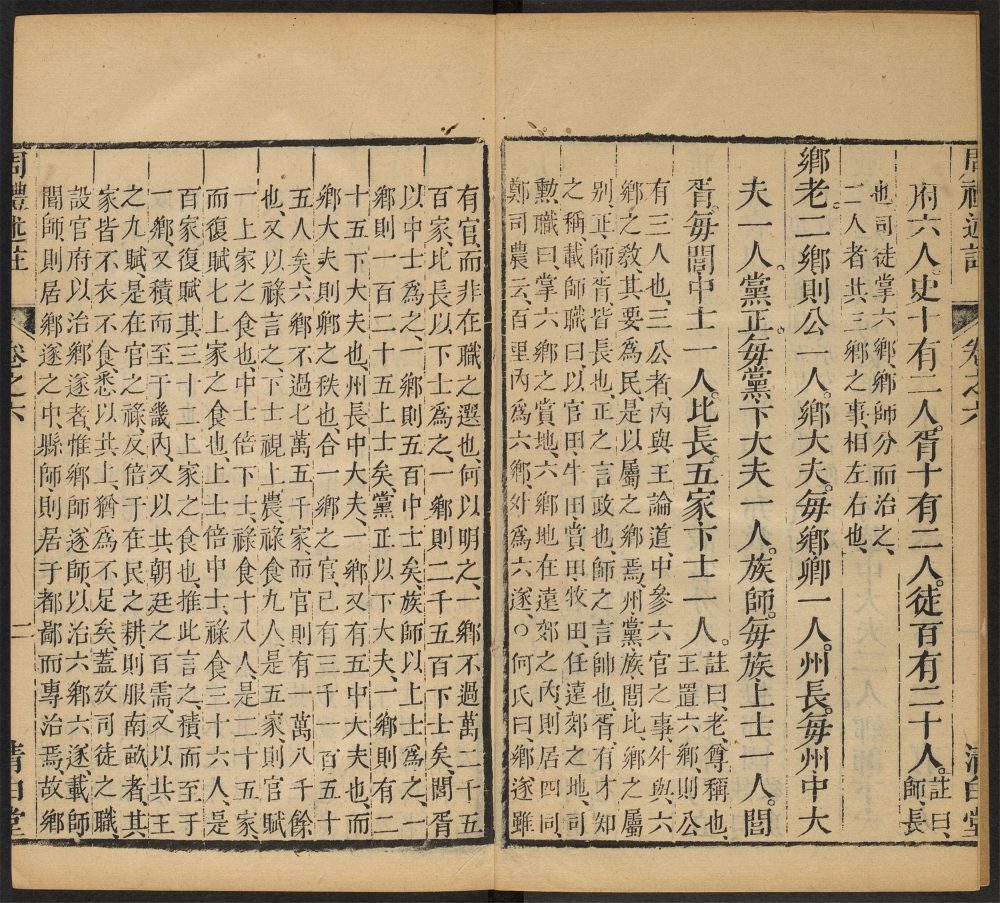 周禮述註
卷之六
清白堂
府六人。史十有二人。胥十有二人。徒百有二十人。註曰、師、長
也、司徒掌六鄉、鄉師分而治之、
二人者共三鄉之事、相左右也、
鄉老。二鄉則公一人。鄉大夫。每鄉卿一人。州長。每州中大
夫一人。黨正。每黨下大夫一人。族師。每族上士一人。閭
胥。每閭中士一人。比長。五家下士一人。註曰、老、尊稱也、王置六鄉、則公
有三人也、三公者、內與王論道、中參六官之事、外與六
鄉之教、其要為民、是以屬之鄉焉、州黨族閭比、鄉之屬
別、正師胥、皆長也、正之言政也、師之言帥也、胥有才知
之稱、載師職曰、以官田、牛田、賞田、牧田、任遠郊之地、司
勲職曰、掌六鄉之賞地、六鄉地在遠郊之內、則居四同、
鄭司農云、百里內為六鄉、外為六遂。○何氏曰、鄉遂雖
有官、而非在職之選也、何以明之、一鄉不過萬二千五
百家、比長以下士為之、一鄉則二千五百下士矣、閭胥
以中士爲之、一鄉則五百中士矣、族師以上士爲之、一
鄉則一百二十五上士矣、黨正以下大夫、一鄉則有二
十五下大夫也、州長中大夫、一鄉又有五中大夫也、而
鄉大夫則卿之秩也、合一鄉之官、已有三千一百五十
五人矣、六鄉不過七萬五千家、而官則有一萬八千餘
也、又以祿言之、下士視上農、祿食九人、是五家、則官賦
一上家之食也、中士倍下士、祿食十八人、是二十五家
而復賦七上家之食也、上士倍中士、祿食三十六人、是
百家復賦其三十二上家之食也、推此言之、積而至于
一鄉、又積而至于畿內、又以共朝廷之百需、又以共王
之九賦、是在官之祿、反倍于在民之耕、則服南畝者、其
家皆不衣不食、悉以共上、猶爲不足矣、蓋攷司徒之職、
設官府以治鄉遂者、惟鄉師遂師、以治六鄉六遂、載師
閭師、則居鄉遂之中、縣師則居于都鄙而專治焉、故鄉
周禮述註
卷之六
二
清白堂